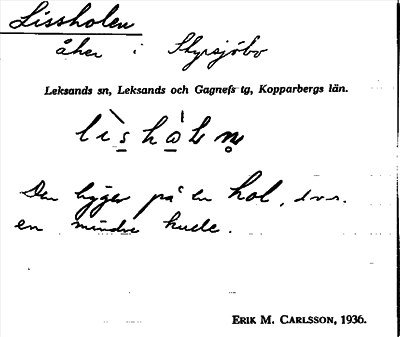 Lissholen
åker i Styrsjöbo
Leksands sn, Leksands och Gagnefs tg, Kopparbergs län.
Den ligger på en hol, d.v.s.
en mindre kulle.
ERIK M. CARLSSON, 1936.